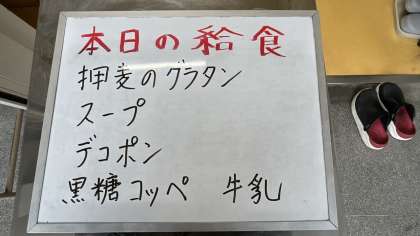 本日の給食
押麦のグラタン
スープ
デコポン
黒糖コッペ　牛乳